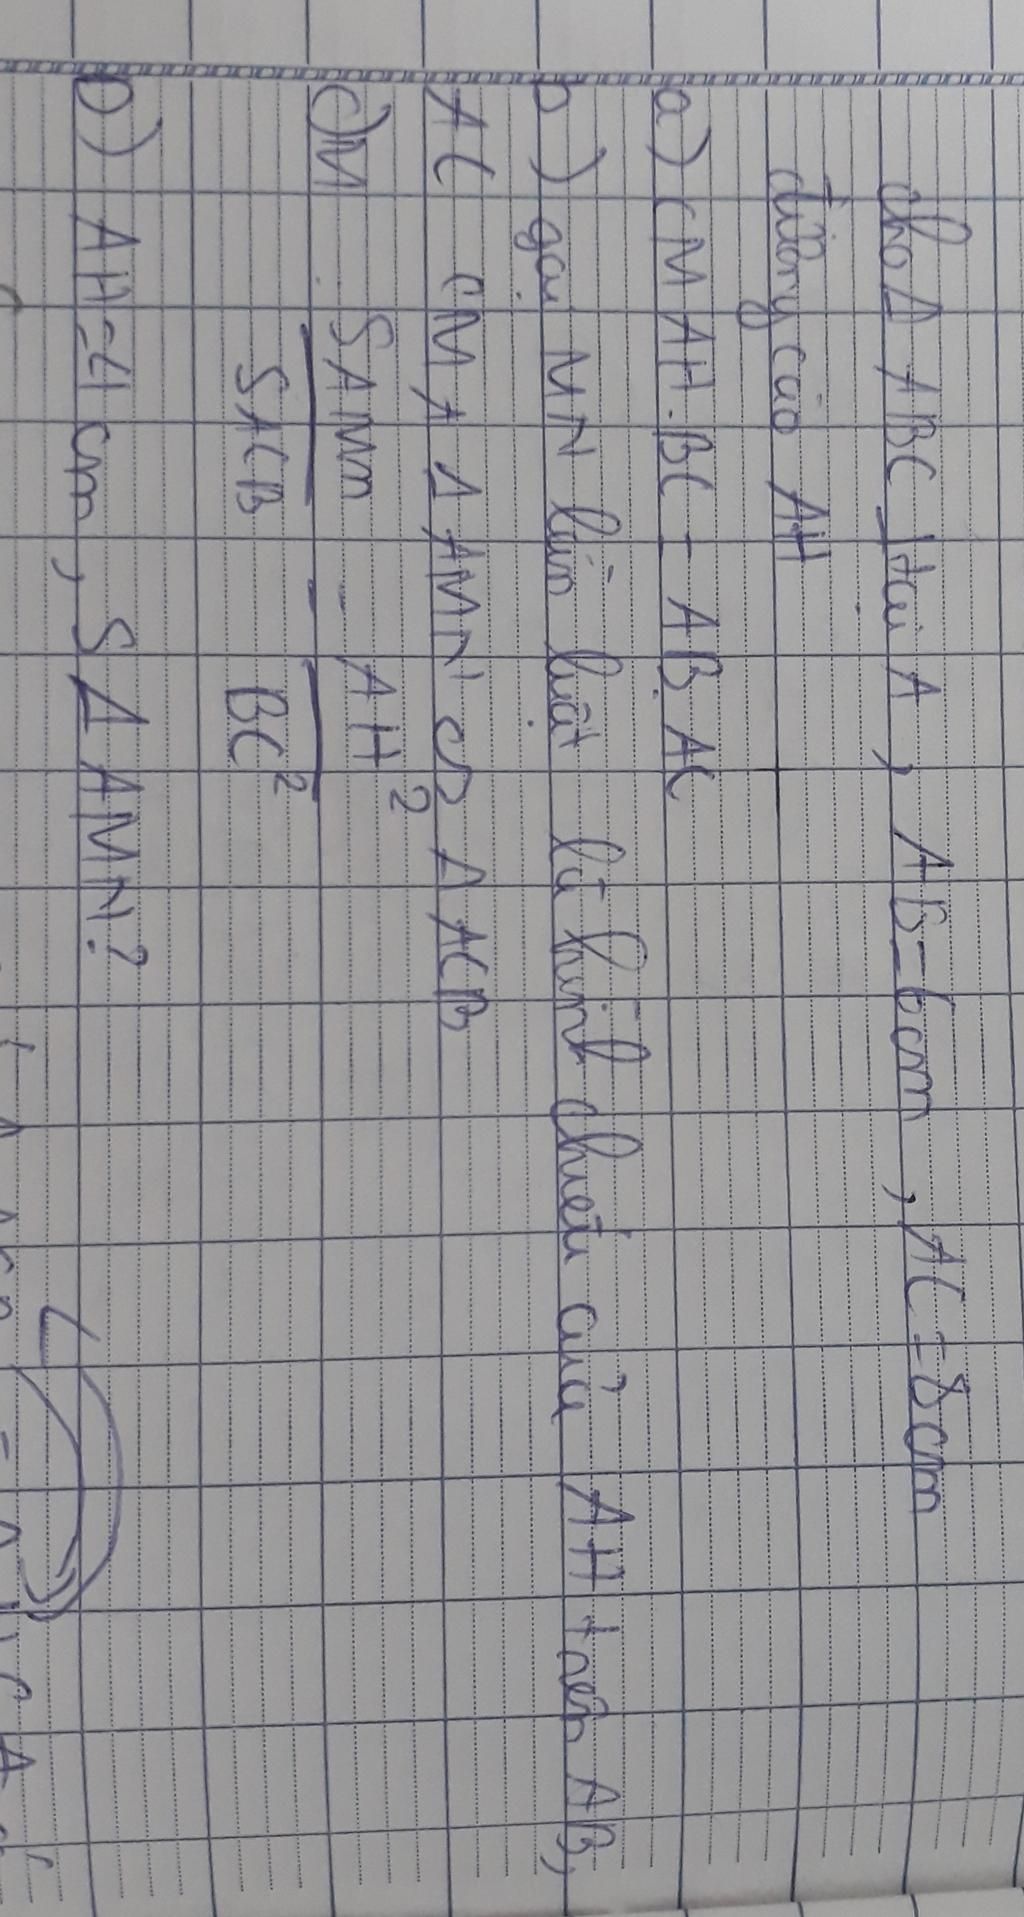 cho Δ ABC ⊥ tại A, AB=6cm, AC=8cm
đường cao AH
a) CM AH.BC = AB.AC
b) gọi MN lần lượt là hình chiếu của AH trên AB,
AC CM A Δ AMN ∽ Δ ACB
c) CM SAMN / SACB = AH² / BC²
D) AH=4cm, SΔ AMN?